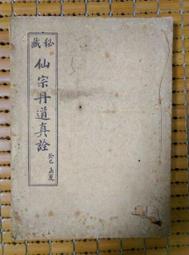 秘藏
仙宗丹道真詮